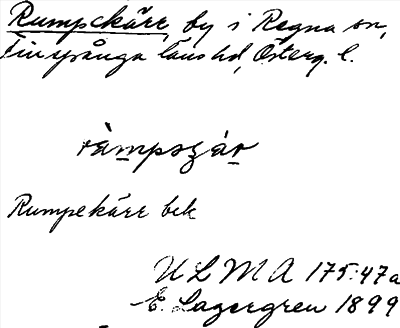 Rumpekärr, by i Regna sn,
Finspånga läns hd, Österg. l.
ràmpsʒáʀ
Rumpekärr bek
ULMA 175:47a
E. Lagergren 1899